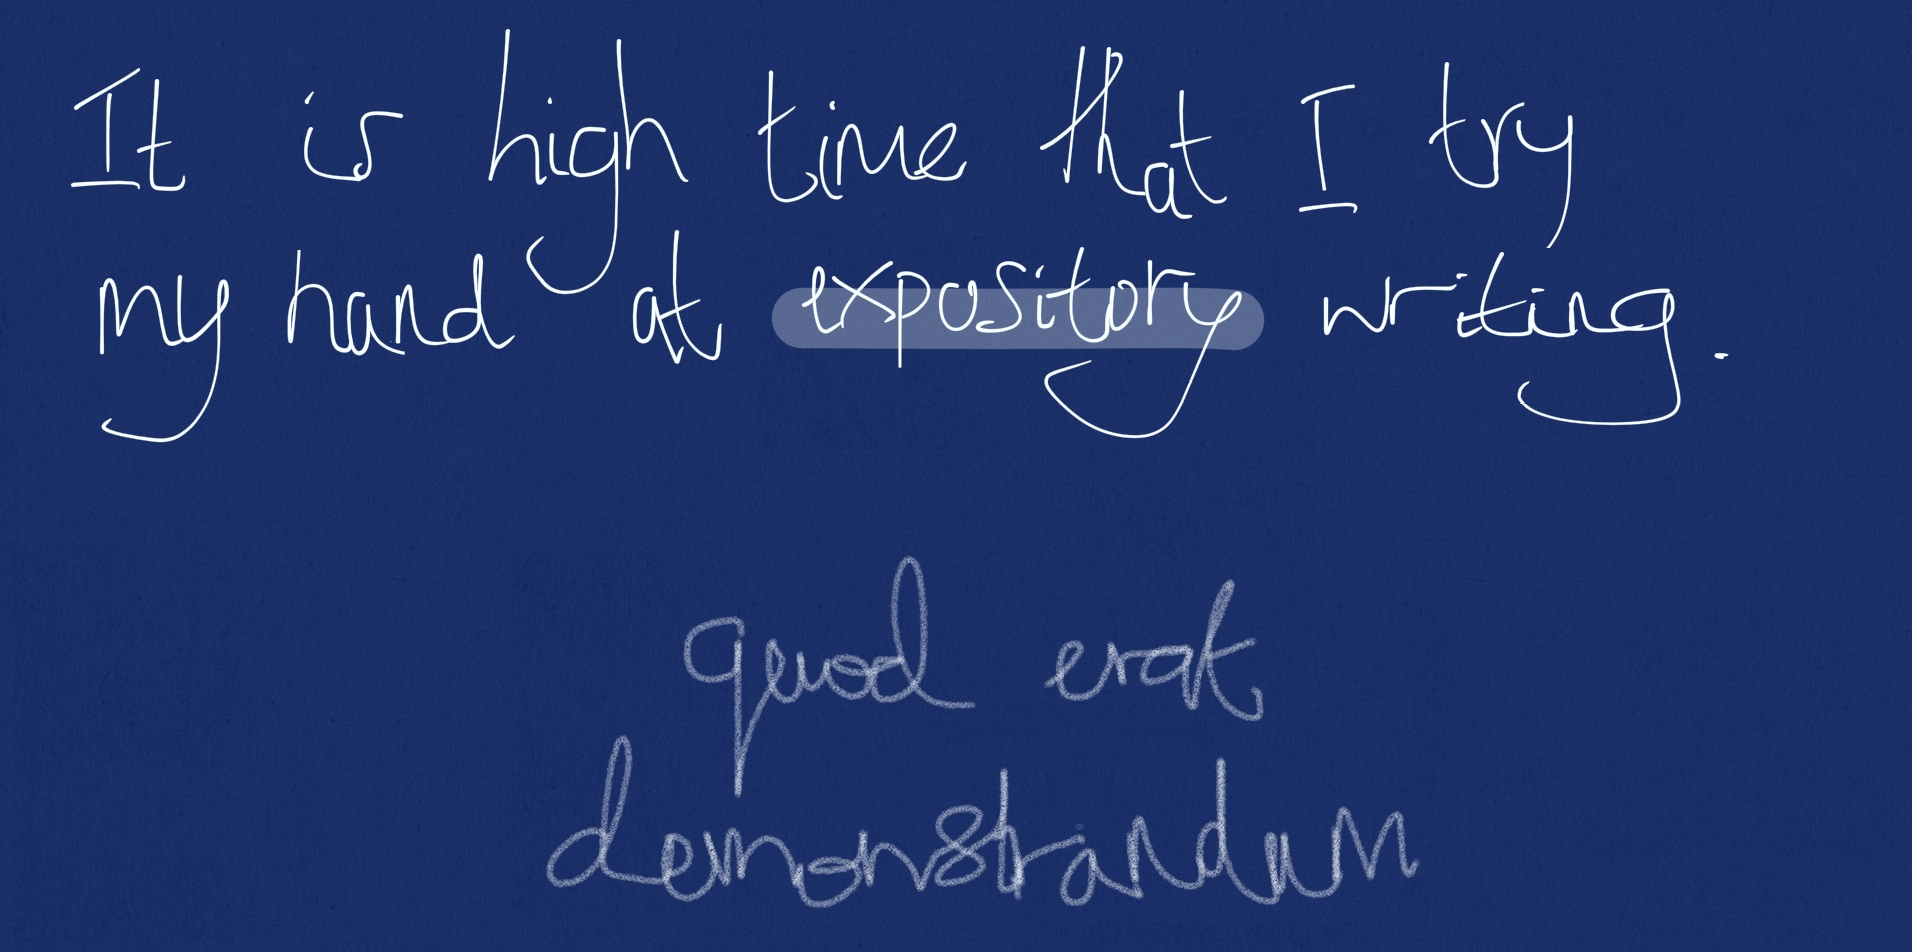 It is high time that I try
my hand at expository writing.
quod erat
demonstrandum